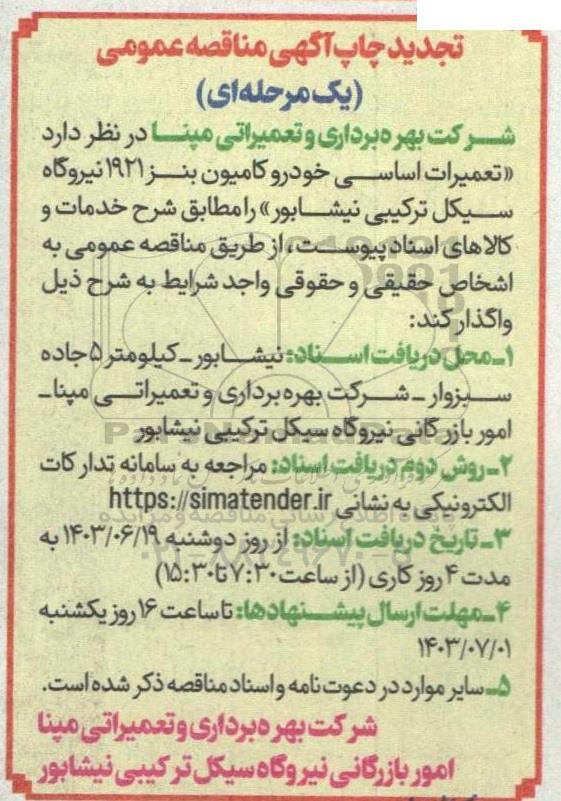 تجدید چاپ آگهی مناقصه عمومی
(یک مرحله‌ای)
شرکت بهره‌برداری و تعمیراتی مپنا در نظر دارد
«تعمیرات اساسی خودرو کامیون بنز ۱۹۲۱ نیروگاه
سیکل ترکیبی نیشابور» را مطابق شرح خدمات و
کالاهای اسناد پیوست، از طریق مناقصه عمومی به
اشخاص حقیقی و حقوقی واجد شرایط به شرح ذیل
واگذار کند:
۱ـ محل دریافت اسناد: نیشابور ـ کیلومتر ۵ جاده
سبزوار ـ شرکت بهره‌برداری و تعمیراتی مپنا ـ
امور بازرگانی نیروگاه سیکل ترکیبی نیشابور
۲ـ روش دوم دریافت اسناد: مراجعه به سامانه تدارکات
الکترونیکی به نشانی https://simatender.ir
۳ـ تاریخ دریافت اسناد: از روز دوشنبه ۱۴۰۳/۰۶/۱۹ به
مدت ۴ روز کاری (از ساعت ۷:۳۰ تا ۱۵:۳۰)
۴ـ مهلت ارسال پیشنهادها: تا ساعت ۱۶ روز یکشنبه
۱۴۰۳/۰۷/۰۱
۵ـ سایر موارد در دعوت نامه و اسناد مناقصه ذکر شده است.
شرکت بهره‌برداری و تعمیراتی مپنا
امور بازرگانی نیروگاه سیکل ترکیبی نیشابور